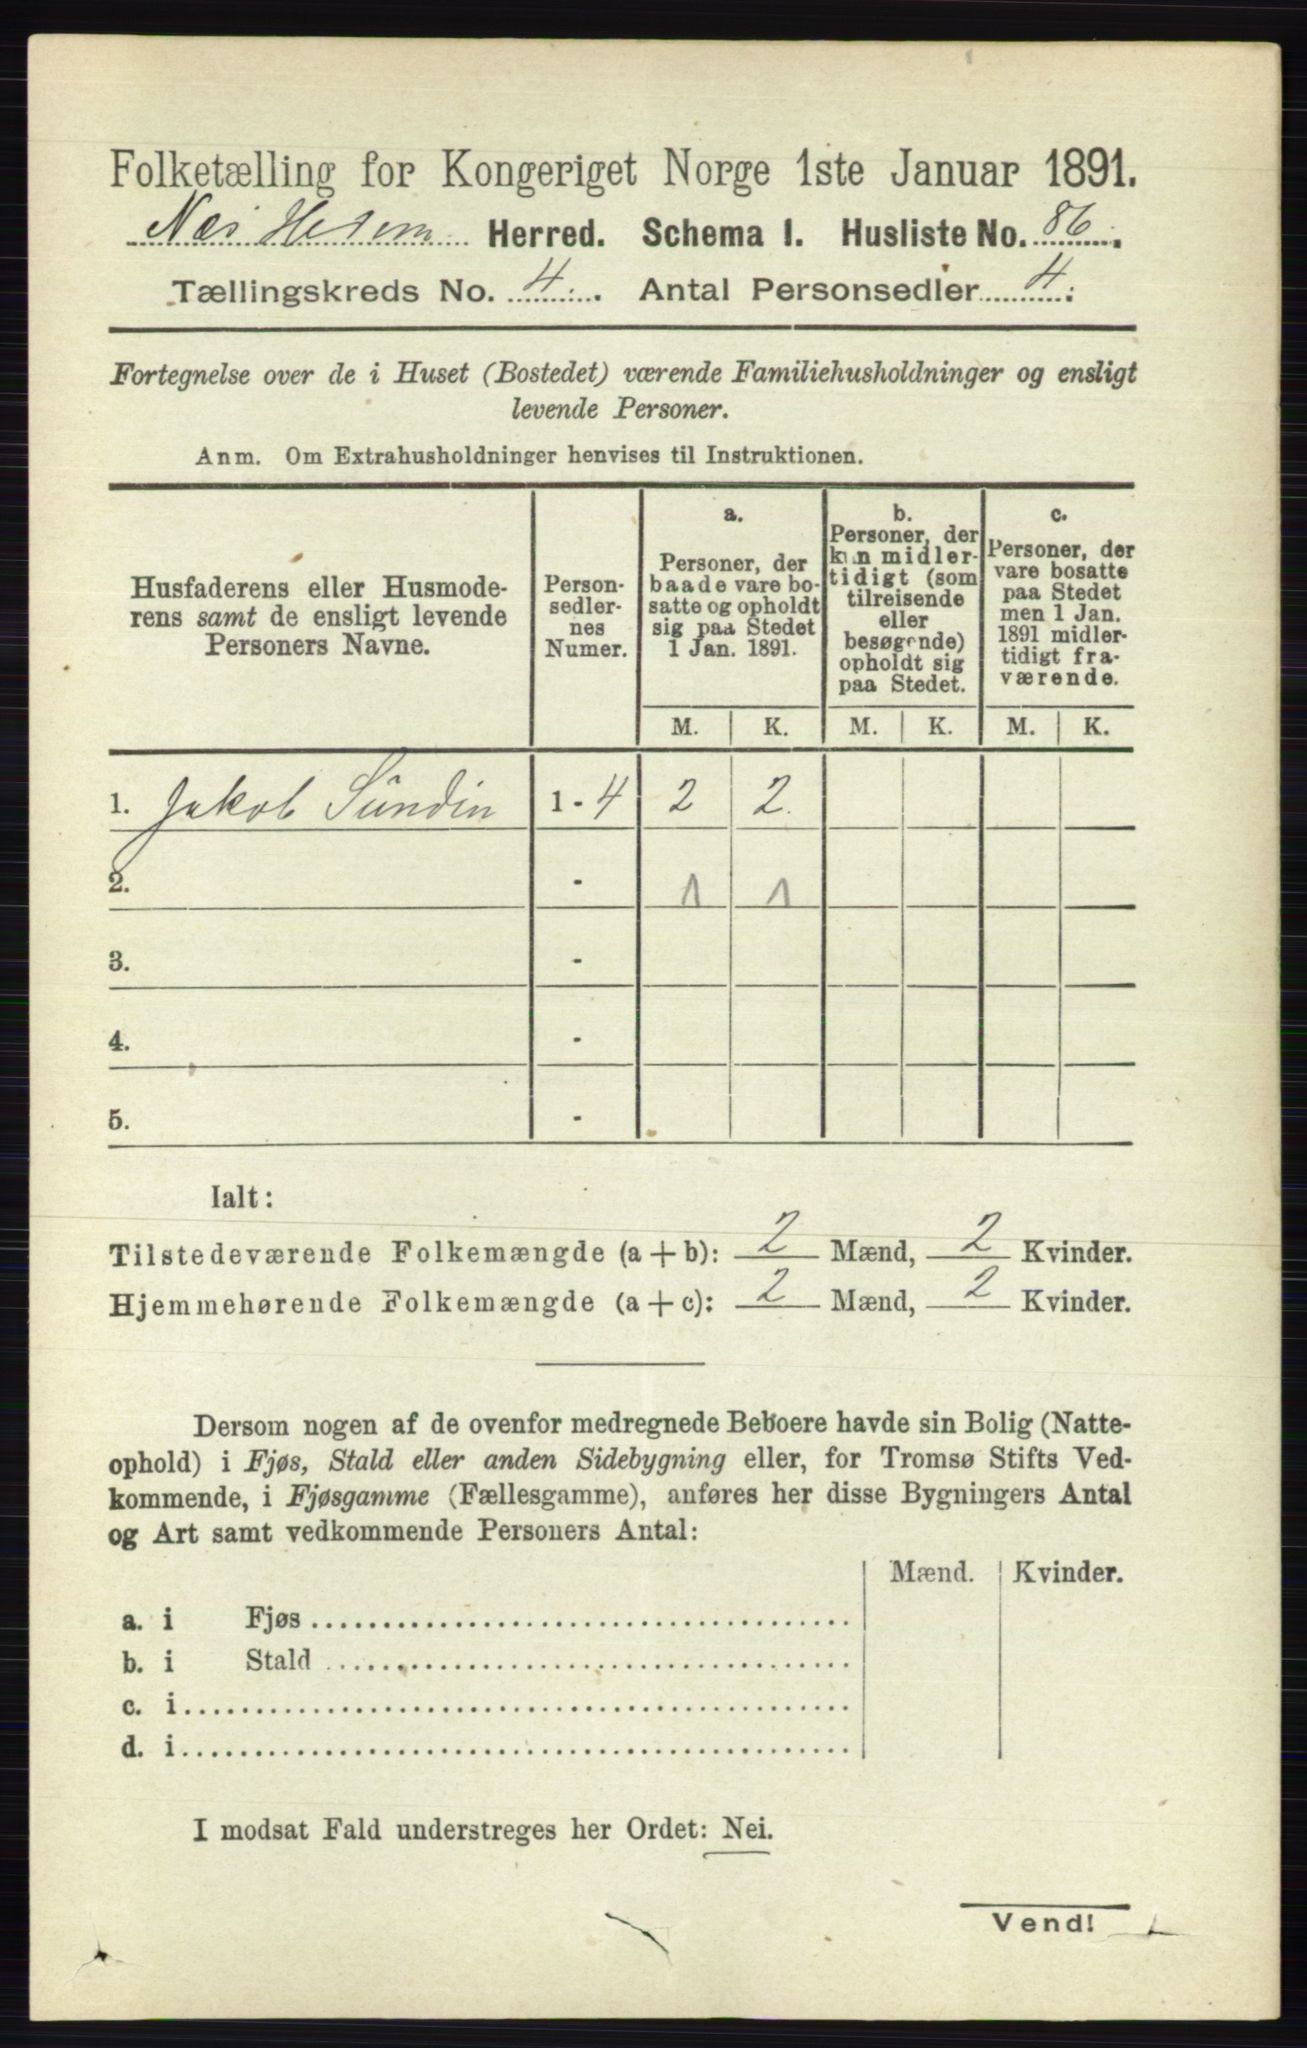 Folketælling for Kongeriget Norge 1ste Januar 1891.
Næs Hedem Herred. Schema I. Husliste No. 86.
Tællingskreds No. 4. Antal Personsedler 4.
Fortegnelse over de i Huset (Bostedet) værende Familiehusholdninger og ensligt
levende Personer.
Anm. Om Extrahusholdninger henvises til Instruktionen.
Husfaderens eller Husmode-
rens samt de ensligt levende
Personers Navne.
Person-
sedler-
nes
Numer.
a.
Personer, der
baade vare bo-
satte og opholdt
sig paa Stedet
1 Jan. 1891.
b.
Personer, der
kun midler-
tidigt (som
tilreisende
eller
besøgende)
opholdt sig
paa Stedet.
c.
Personer, der
vare bosatte
paa Stedet
men 1 Jan.
1891 midler-
tidigt fra-
værende.
M. K. M. K. M. K.
1. Jakob Sundin 1 - 4 2 2
2. - 1 1
3. -
4. -
5. -
Ialt:
Tilstedeværende Folkemængde (a + b): 2 Mænd, 2 Kvinder.
Hjemmehørende Folkemængde (a + c): 2 Mænd, 2 Kvinder.
Dersom nogen af de ovenfor medregnede Beboere havde sin Bolig (Natte-
ophold) i Fjøs, Stald eller anden Sidebygning eller, for Tromsø Stifts Ved-
kommende, i Fjøsgamme (Fællesgamme), anføres her disse Bygningers Antal
og Art samt vedkommende Personers Antal:
Mænd. Kvinder.
a. i Fjøs
b. i Stald
c. i
d. i
I modsat Fald understreges her Ordet: Nei.
Vend!